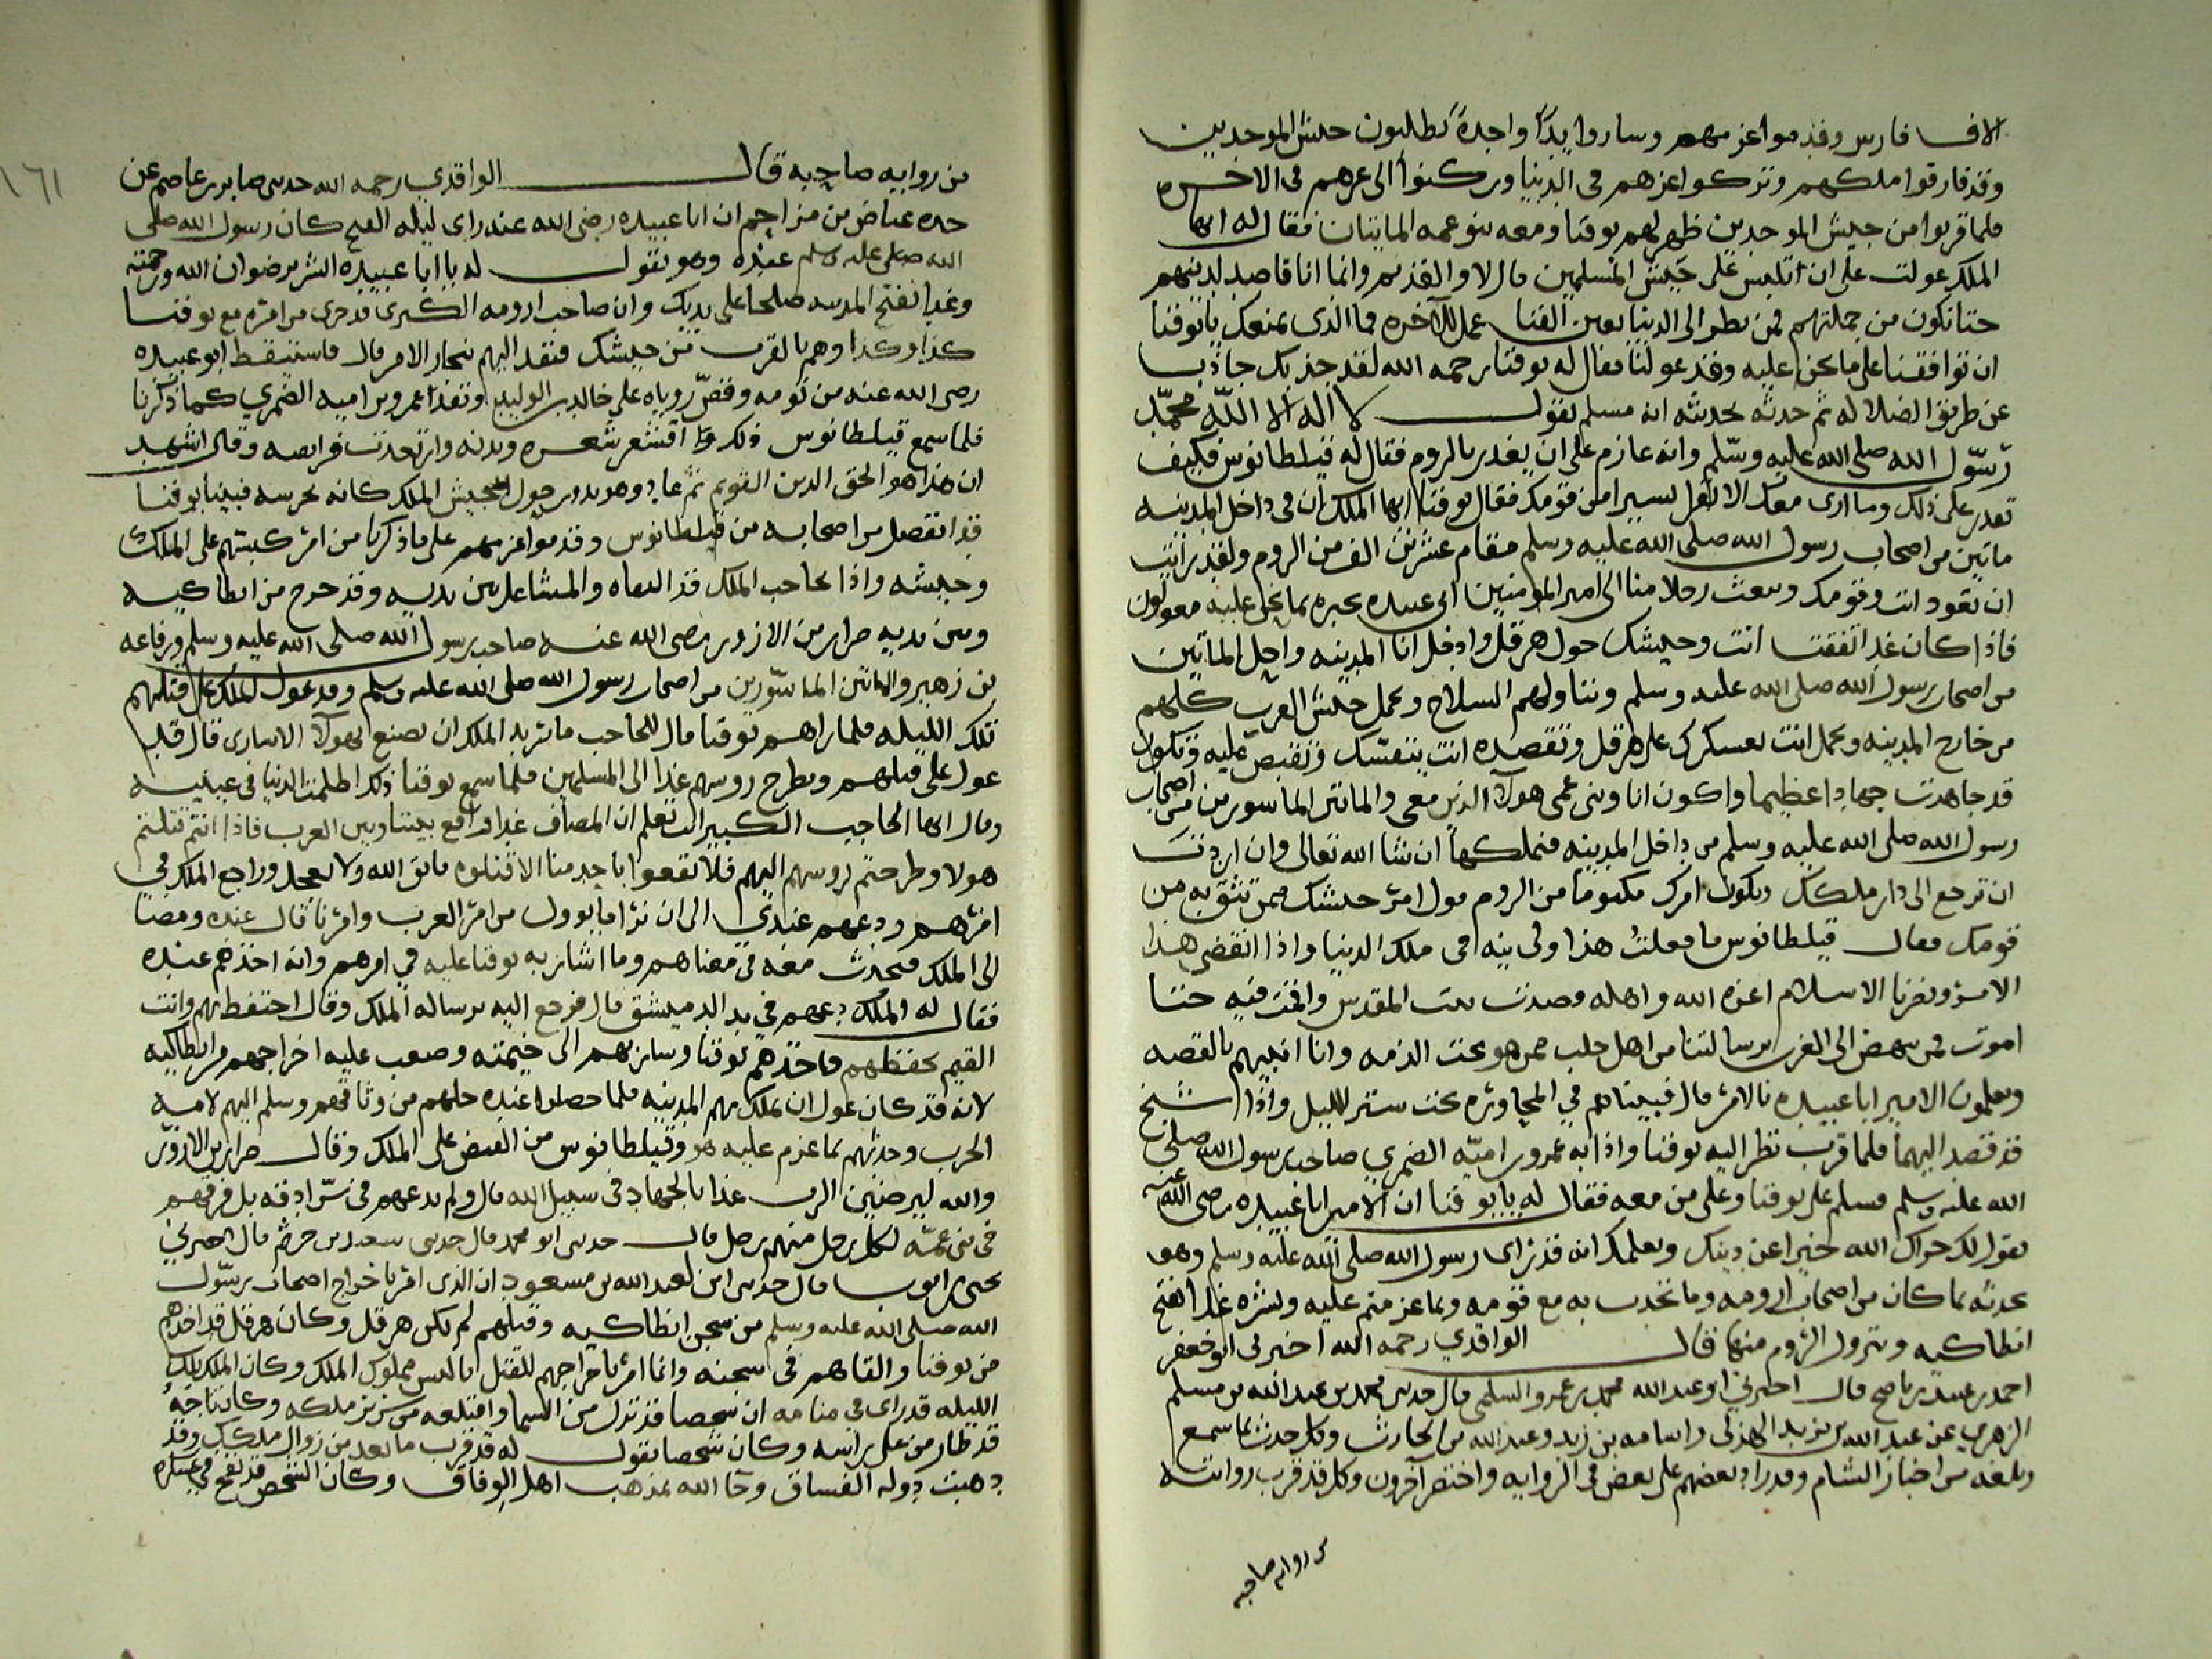 الاف فارس وقد مواعزمهم وساروا يدًا واحدة يطلبون جيش الموحدين
وقد فارقوا ملكهم وتركوا عزهم في الدنيا وركنوا الى عزهم في الاخره
فلما قربوا من جيش الموحدين ظهر لهم يوقنا ومعه بنو عمه المايتان فقال له ايها
الملك عولت على ان تلبس على جيش المسلمين قال لا والقديم وانما انا قاصد لدينهم
حتا نكون من جملتهم فمن نظر الى الدنيا بعين الفنا عمل للآخره فما الذي يمنعك يا يوقنا
ان توافقنا على ما نحن عليه وقد عولنا فقال له يوقنا رحمه الله لقد جذبك جاذب
عن طريق الضلاله ثم حدثه بحديثه انه مسلم يقول لا اله الا الله محمّد
رسّول الله صلى الله عليه وسلّم وانه عازم على ان يغدر بالروم فقال له قيلطانوس فكيف
تقدر على ذلك وما ارى معك الا نفر يسيرا من قومك فقال يوقنا ايها الملك ان في داخل المدينه
مايتين من اصحاب رسول الله صلى الله عليه وسلم مقام عشرين الف من الروم ولقد رايت
ان تعود انت وقومك وتبعث رجلا منا الى امير المومنين ابي عبيده يخبره بما نحن عليه معولون
فاذا كان غدا اتفقت انت وجيشك حول هرقل وادخل انا المدينه واحل الماتين
من اصحاب رسول الله صلى الله عليه وسلم ونناولهم السلاح ويحمل جيش العرب كلهم
من خارج المدينه وتحمل انت بعسكرك على هرقل وتقصده انت بنفسّك وتقبض عليه وتكون
قد جاهدت جهادا عظيما واكون انا وبنى عمى هولآ الذين معي والماتين الماسورين من اصحاب
رسول الله صلى الله عليه وسلم من داخل المدينه فنملكها ان شا الله تعالى وان اردت
ان ترجع الى دار ملكك ويكون امرك مكتوما من الروم فول امر جيشك ممن تثق به من
قومك فقال قيلطانوس ما فعلت هذا ولي نيه في ملك الدنيا واذا انقضى هذا
الامر ونصرنا الاسلام اعزه الله واهله قصدت بيت المقدس واقمت فيه حتا
اموت فمن ينهض الى العرب برسالتنا من اهل حلب ممن هو تحت الذمه وانا اتيهم بالقصه
ويعلمون الامير ابا عبيده بالامر قال فبينا هم في المحاوره تحت ستر الليل واذا شيخ
قد قصد اليهما فلما قرب نظر اليه يوقنا واذا به عمرو بن اميّه الضمري صاحب رسول الله صلى
الله عليه وسلم فسلم على يوقنا وعلى من معه فقال له يا يوقنا ان الامير ابا عبيده رضى الله عنه
يقول لك جزاك الله خيرا عن دينك ويعلمك انه قد راى رسول الله صلى الله عليه وسلم وهو
يحدثه بما كان من اصحاب اروميه وما تحدث به مع قومه وبما عزمتم عليه وبشره غدا بفتح
انطاكيه ونزول الروم منها قال الواقدي رحمه الله اخبرني ابو جعفر
احمد بن عبيد بن ناصح قال اخبرني ابو عبد الله محمد بن عمرو السلمي قال حدثني محمد بن عبد الله بن مسلم
الزهري عن عبد الله بن يزيد الهذلى واسامه بن زيد وعبد الله بن الحارث وكل حدث بما سمع
وبلغه من اخبار الشام وقد زاد بعضهم على بعض في الروايه واختصر آخرون وكل قد قرب روايته
من روايه صاحبه
١٦١
من روايه صاحبه قال الواقدي رحمه الله حدثني صابر بن عاصم عن
جده عياض بن مزاحم ان ابا عبيده رضى الله عنه راى ليله الفتح كان رسول الله صلى
الله صلى عليه وسلم عنده وهو يقول له يا ابا عبيده ابشر برضوان الله ورحمته
وغدا تفتح المدينه صلحا على يديك وان صاحب اروميه الكبرى قد جرى من امره مع يوقنا
كذا وكذا وهم بالقرب من جيشك فنفذ اليهم بنجاز الامر قال فاستيقظ ابو عبيده
رضى الله عنه من نومه وقصّ روياه على خالد بن الوليد ونفذ عمرو بن اميه الضمري كما ذكرنا
فلما سمع قيلطانوس ذلك اقشعر شعره وبدنه وارتعدت فرايصه وقال اشهد
ان هذا هو الحق الدين القويم ثم عاد وهو يدور حول جيش الملك كانه يحرسه فبينا يوقنا
قد انفصل من اصحابه من قيلطانوس وقد مواعزمهم على ما ذكرنا من امر كبستهم على الملك
وجيشه واذا بحاجب الملك قد التقاه والمشاعل بين يديه وقد خرج من انطاكيه
وبين يديه ضرار بن الازور رضى الله عنه صاحب رسول الله صلى الله عليه وسلم ورفاعه
بن زهير والماتين الماسّورين من اصحاب رسول الله صلى الله عليه وسلم وقد عول الملك على قتلهم
تلك الليله فلما راهم يوقنا قال للحاجب ما يريد الملك ان يصنع بهولآ الاسارى قال قد
عول على قتلهم ويطرح روسهم غدا الى المسلمين فلما سمع يوقنا ذلك اظلمت الدنيا في عينيه
وقال ايها الحاجب الكبير انت تعلم ان المصاف غدا واقع بيننا وبين العرب فاذا انتم قتلتم
هولا وطرحتم روسهم اليهم فلا تقعوا باحد منا الا قتلوه فاتق الله ولا تعجل وراجع الملك في
امرهم ودعهم عندى الى ان نرا ما يوول من امر العرب وامرنا قال عنده ومضا
الى الملك فتحدث معه في معناهم وما اشار به يوقنا عليه في امرهم وانه اخذهم عنده
فقال له الملك دعهم في يد الدميشق قال فرجع اليه برساله الملك وقال احتفظ بهم وانت
القيم بحفظهم فاخذهم يوقنا وسار بهم الى خيمته وصعب عليه اخراجهم من انطاكيه
لانه قد كان عول ان يملك بهم المدينه فلما حصلوا عنده حلهم من وثاقهم وسلم اليهم لامه
الحرب وحدثهم بما عزم عليه هو وقيلطانوس من القبض على الملك وقال ضرار بن الازور
والله ليرضين الرب غدا بالجهاد في سبيل الله قال ولم يدعهم في سّرادقه بل فرقهم
في بنى عمّه لكل رجل منهم رجل قال حدثني ابو محمد قال حدثني سعيد بن حرثم قال اخبرني
يحيى بن ايوب قال حدثني ابن لعبد الله بن مسعود ان الذى امر باخراج اصحاب رسّول
الله صلى الله عليه وسلم من سجن انطاكيه وقتلهم لم يكن هرقل وكان هرقل قد اخذهم
من يوقنا والقاهم في سجنه وانما امر باخراجهم للقتل اباليس مملوك الملك وكان الملك تلك
الليله قد راى في منامه ان شخصا قد نزل من السما واقتلعه من سرير ملكه وكان تاجه
قد طار من على راسه وكان شخصا يقول له قد قرب ما بعد من زوال ملكك وقد
ذهبت دوله الفساق وجآ الله بمذهب اهل الوفاق وكان الشخص قد نفخ في عسكره